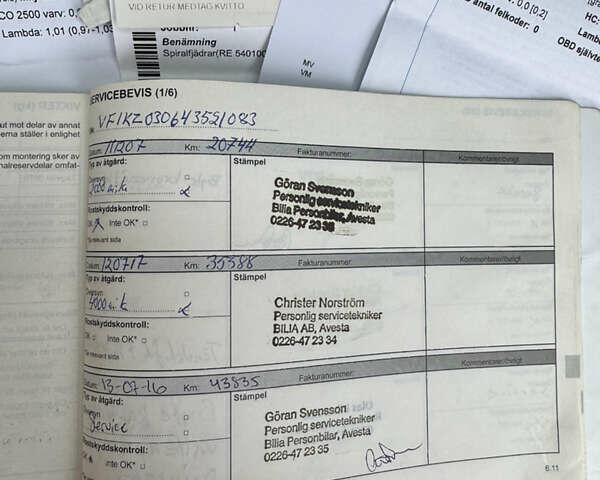 CO 2500 varv: 0,
Lambda: 1,01 (0,97-1,03
VID RETUR MEDTAG KVITTO
Benämning
Spiralfjädrar(RE.540100
MV
VM
0,0 [0,2]
antal felkoder: 0
HC:
Lamb
OBD självte
ut mot delar av annat
erna ställer i enlighet
om montering sker av
nalreservdelar omfat-
SERVICEBEVIS (1/6)
VF1KZ030643521083
Datum: 111207 Km: 20744 Fakturanummer: Kommentarer/övrigt
Typ av åtgärd:
Översyn
Rostskyddskontroll:
OK Inte OK*
*Se relevant sida
Stämpel
Göran Svensson
Personlig servicetekniker
Bilia Personbilar, Avesta
0226-47 23 35
Datum: 120717 Km: 35388 Fakturanummer: Kommentarer/övrigt
Typ av åtgärd:
Översyn
Rostskyddskontroll:
OK Inte OK*
*Se relevant sida
Stämpel
Christer Norström
Personlig servicetekniker
BILIA AB, Avesta
0226-47 23 34
Datum: 13-07-16 Km: 43835 Fakturanummer: Kommentarer/övrigt
Typ av åtgärd:
Översyn
Service
Rostskyddskontroll:
OK Inte OK*
Stämpel
Göran Svensson
Personlig servicetekniker
Bilia Personbilar, Avesta
0226-47 23 35
6.11